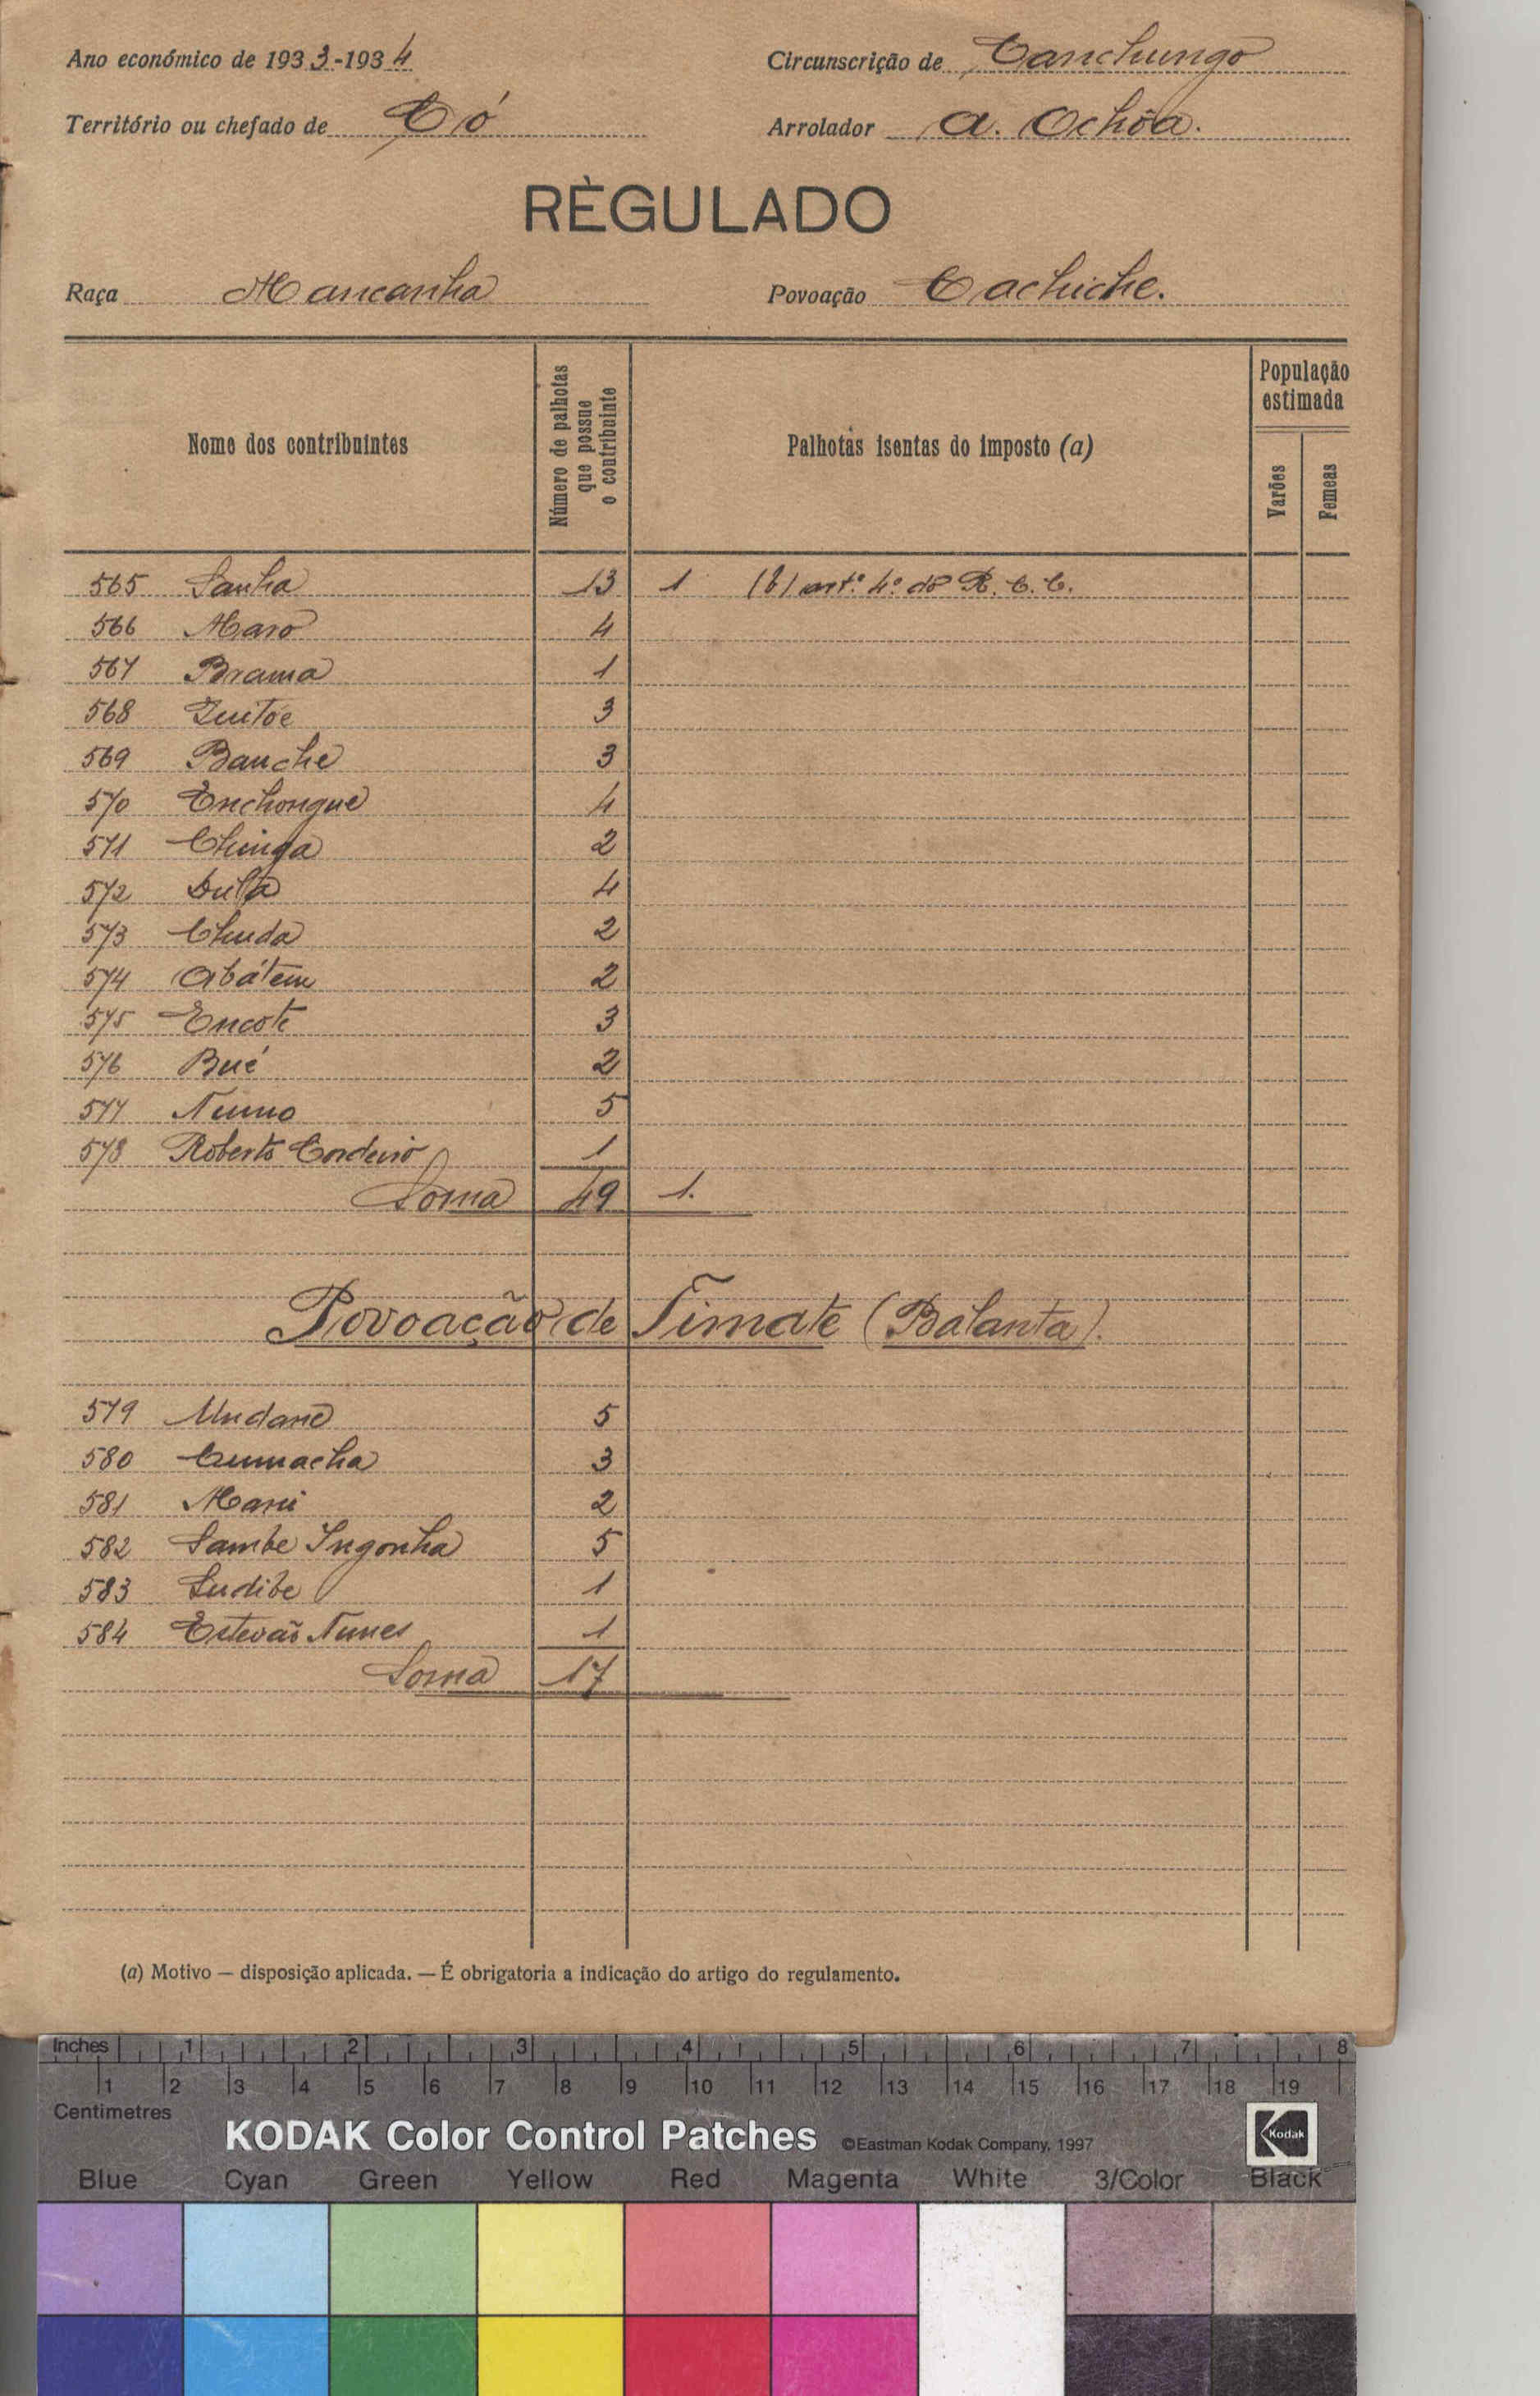 Ano económico de 1933-1934 Circunscrição de Canchungo
Território ou chefado de Có Arrolador A. Ochôa.
RÈGULADO
Raça Mancanha Povoação Cachiche.
Nome dos contribuintes
Número de palhotas que possue o contribuinte
Palhotas isentas do imposto (a)
População estimada
Varões
Femeas
565 Sanha 13 1 (b) art.º 4.º do R. C. C.
566 Maro 4
567 Brama 1
568 Quitoe 3
569 Banche 3
570 Enchongue 4
571 Chinga 2
572 Dula 4
573 Chuda 2
574 Abátem 2
575 Encote 3
576 Bué 2
577 Nunno 5
578 Roberto Cordeiro 1
Soma 49 1.
Povoação de Timate (Balanta).
579 Undane 5
580 Cumacha 3
581 Mani 2
582 Sambe Ingonha 5
583 Ludibe 1
584 Estevão Nunes 1
Soma 17
(a) Motivo — disposição aplicada. — É obrigatoria a indicação do artigo do regulamento.
Inches 1 2 3 4 5 6 7 8
1 2 3 4 5 6 7 8 9 10 11 12 13 14 15 16 17 18 19
Centimetres
KODAK Color Control Patches ©Eastman Kodak Company, 1997 Kodak
Blue Cyan Green Yellow Red Magenta White 3/Color Black